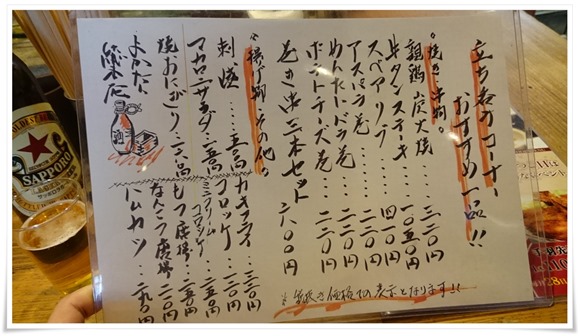 立ち呑みコーナー
おすすめ一品!!
。焼き・串刺。
親鶏炭火焼・・・三二〇円
牛タンステーキ・・一〇五〇円
スペアリブ・・・四一〇円
アスパラ巻・・・二二〇円
めんたいバラ巻・・二二〇円
ポテトチーズ巻・・二二〇円
巻き串三本セット 六〇〇円
。揚げ物、その他。
刺盛・・・
マカロニサラダ・・
焼おにぎり・・
カキフライ・・三二〇円
コロッケ・・・
ミニクリームコロッケ・・二五〇円
もつ唐揚・・二五〇円
なんこつ唐揚
ハムカツ・・二九〇円
酒
税抜き価格での表示となります!!
SAPPORO